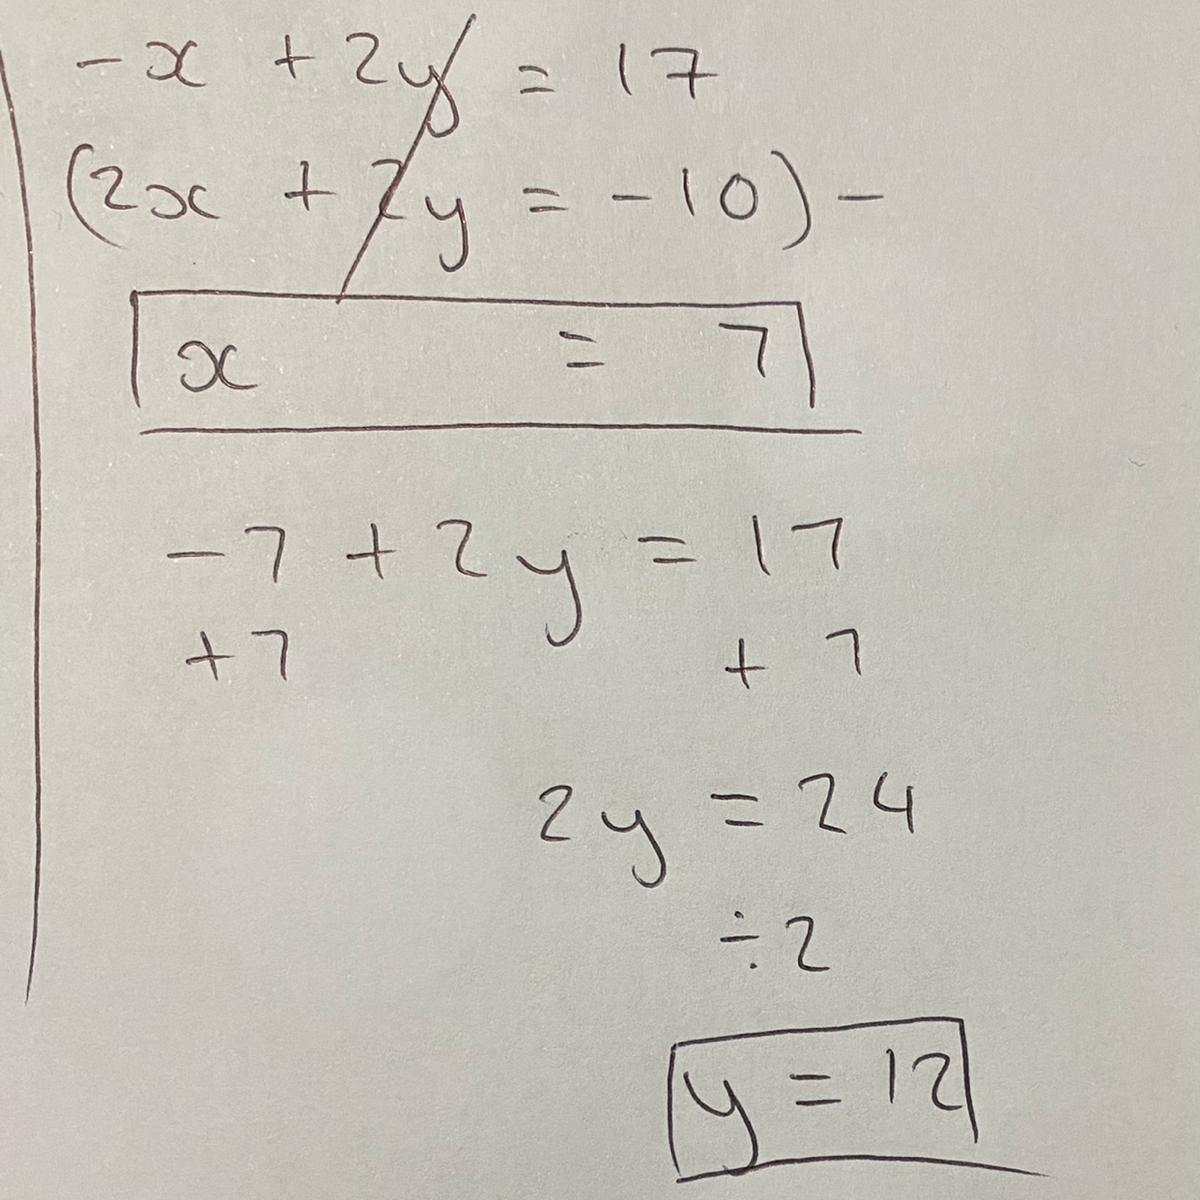 -x + 2y = 17
(2x + 2y = -10) -
x = 7
-7 + 2y = 17
+7 + 7
2y = 24
÷2
y = 12